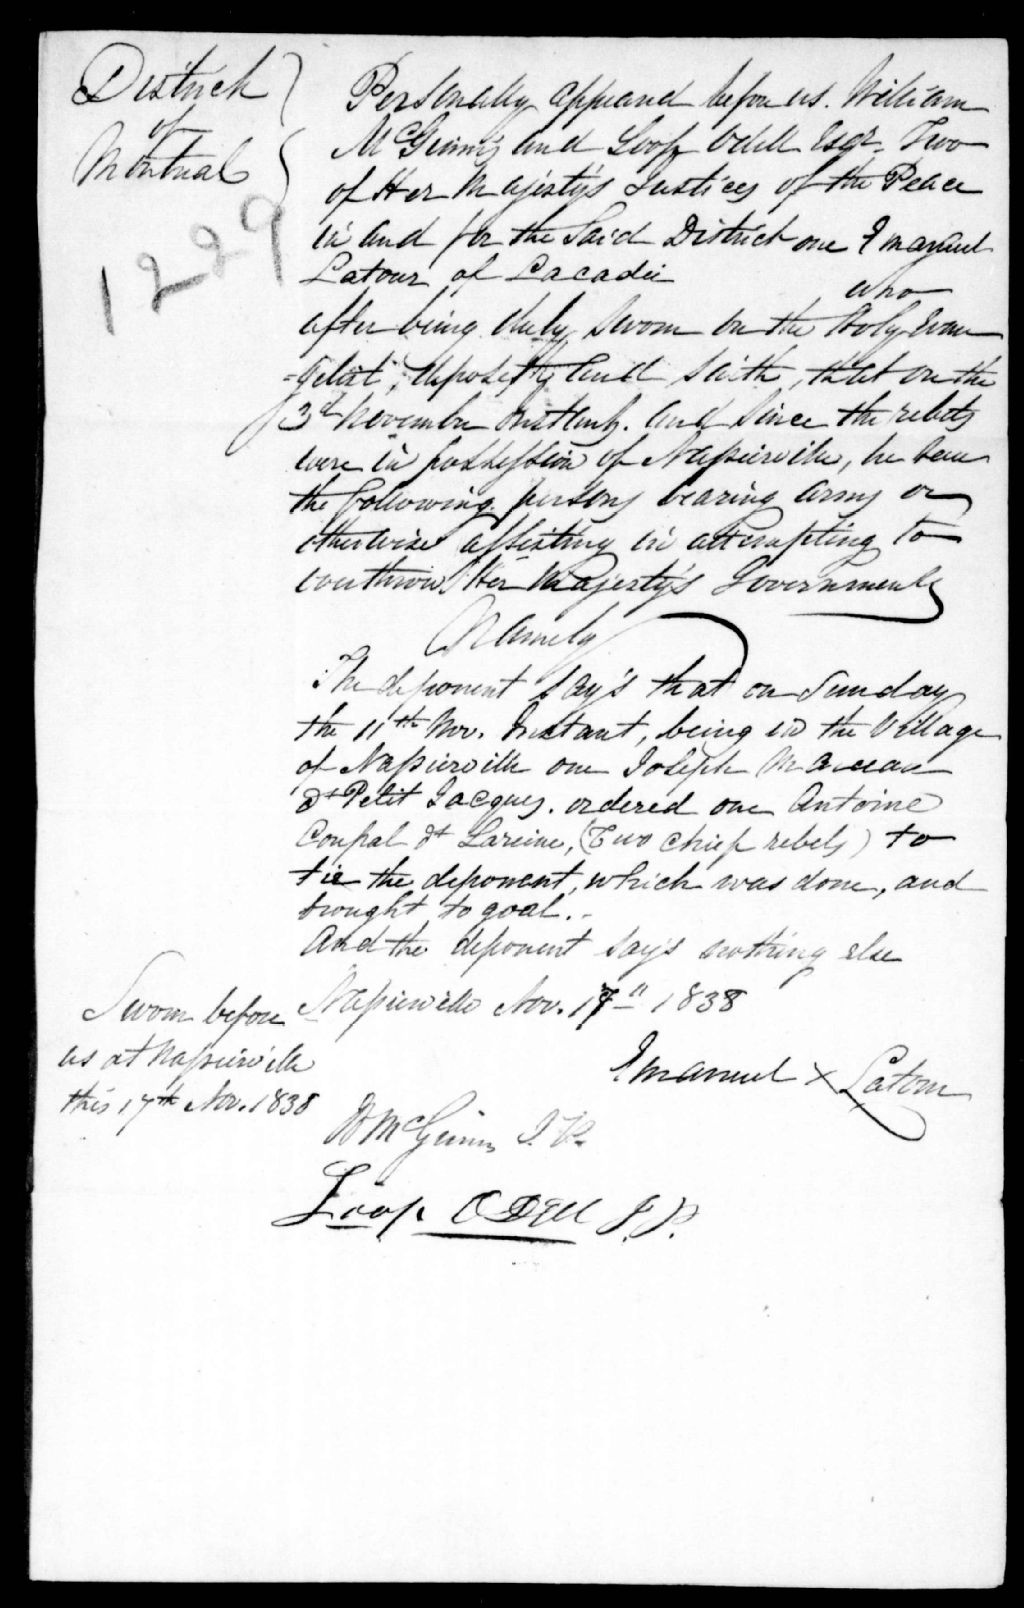 District
of
Montreal
1229
Personally appeared before us. William
McGinnis and Loop Odell Esqr. Two
of Her Majesty's Justices of the Peace
in and for the Said District one Emanuel
Latour of Lacadie
who
after being duly Sworn on the Holy Evan
=gelist, deposeth and saith, that on the
3d November Instant. and Since the rebels
were in possession of Napierville, he saw
the following persons bearing arms or
otherwise assisting in attempting to
overthrow Her Majesty's Government
Namely
The deponent say's that on Sunday
the 11th Nov. Instant, being in the Village
of Napierville one Joseph
dt Petit Jacques. ordered one Antoine
Coupal dt Lareine, (Two chief rebels) to
tie the deponent, which was done, and
brought to goal.
And the deponent say's nothing else
Napierville Nov. 17th 1838
Sworn before
us at Napierville
this 17th Nov. 1838
Emanuel x Latour
W McGinnis J.P.
Loop Odell J.P.